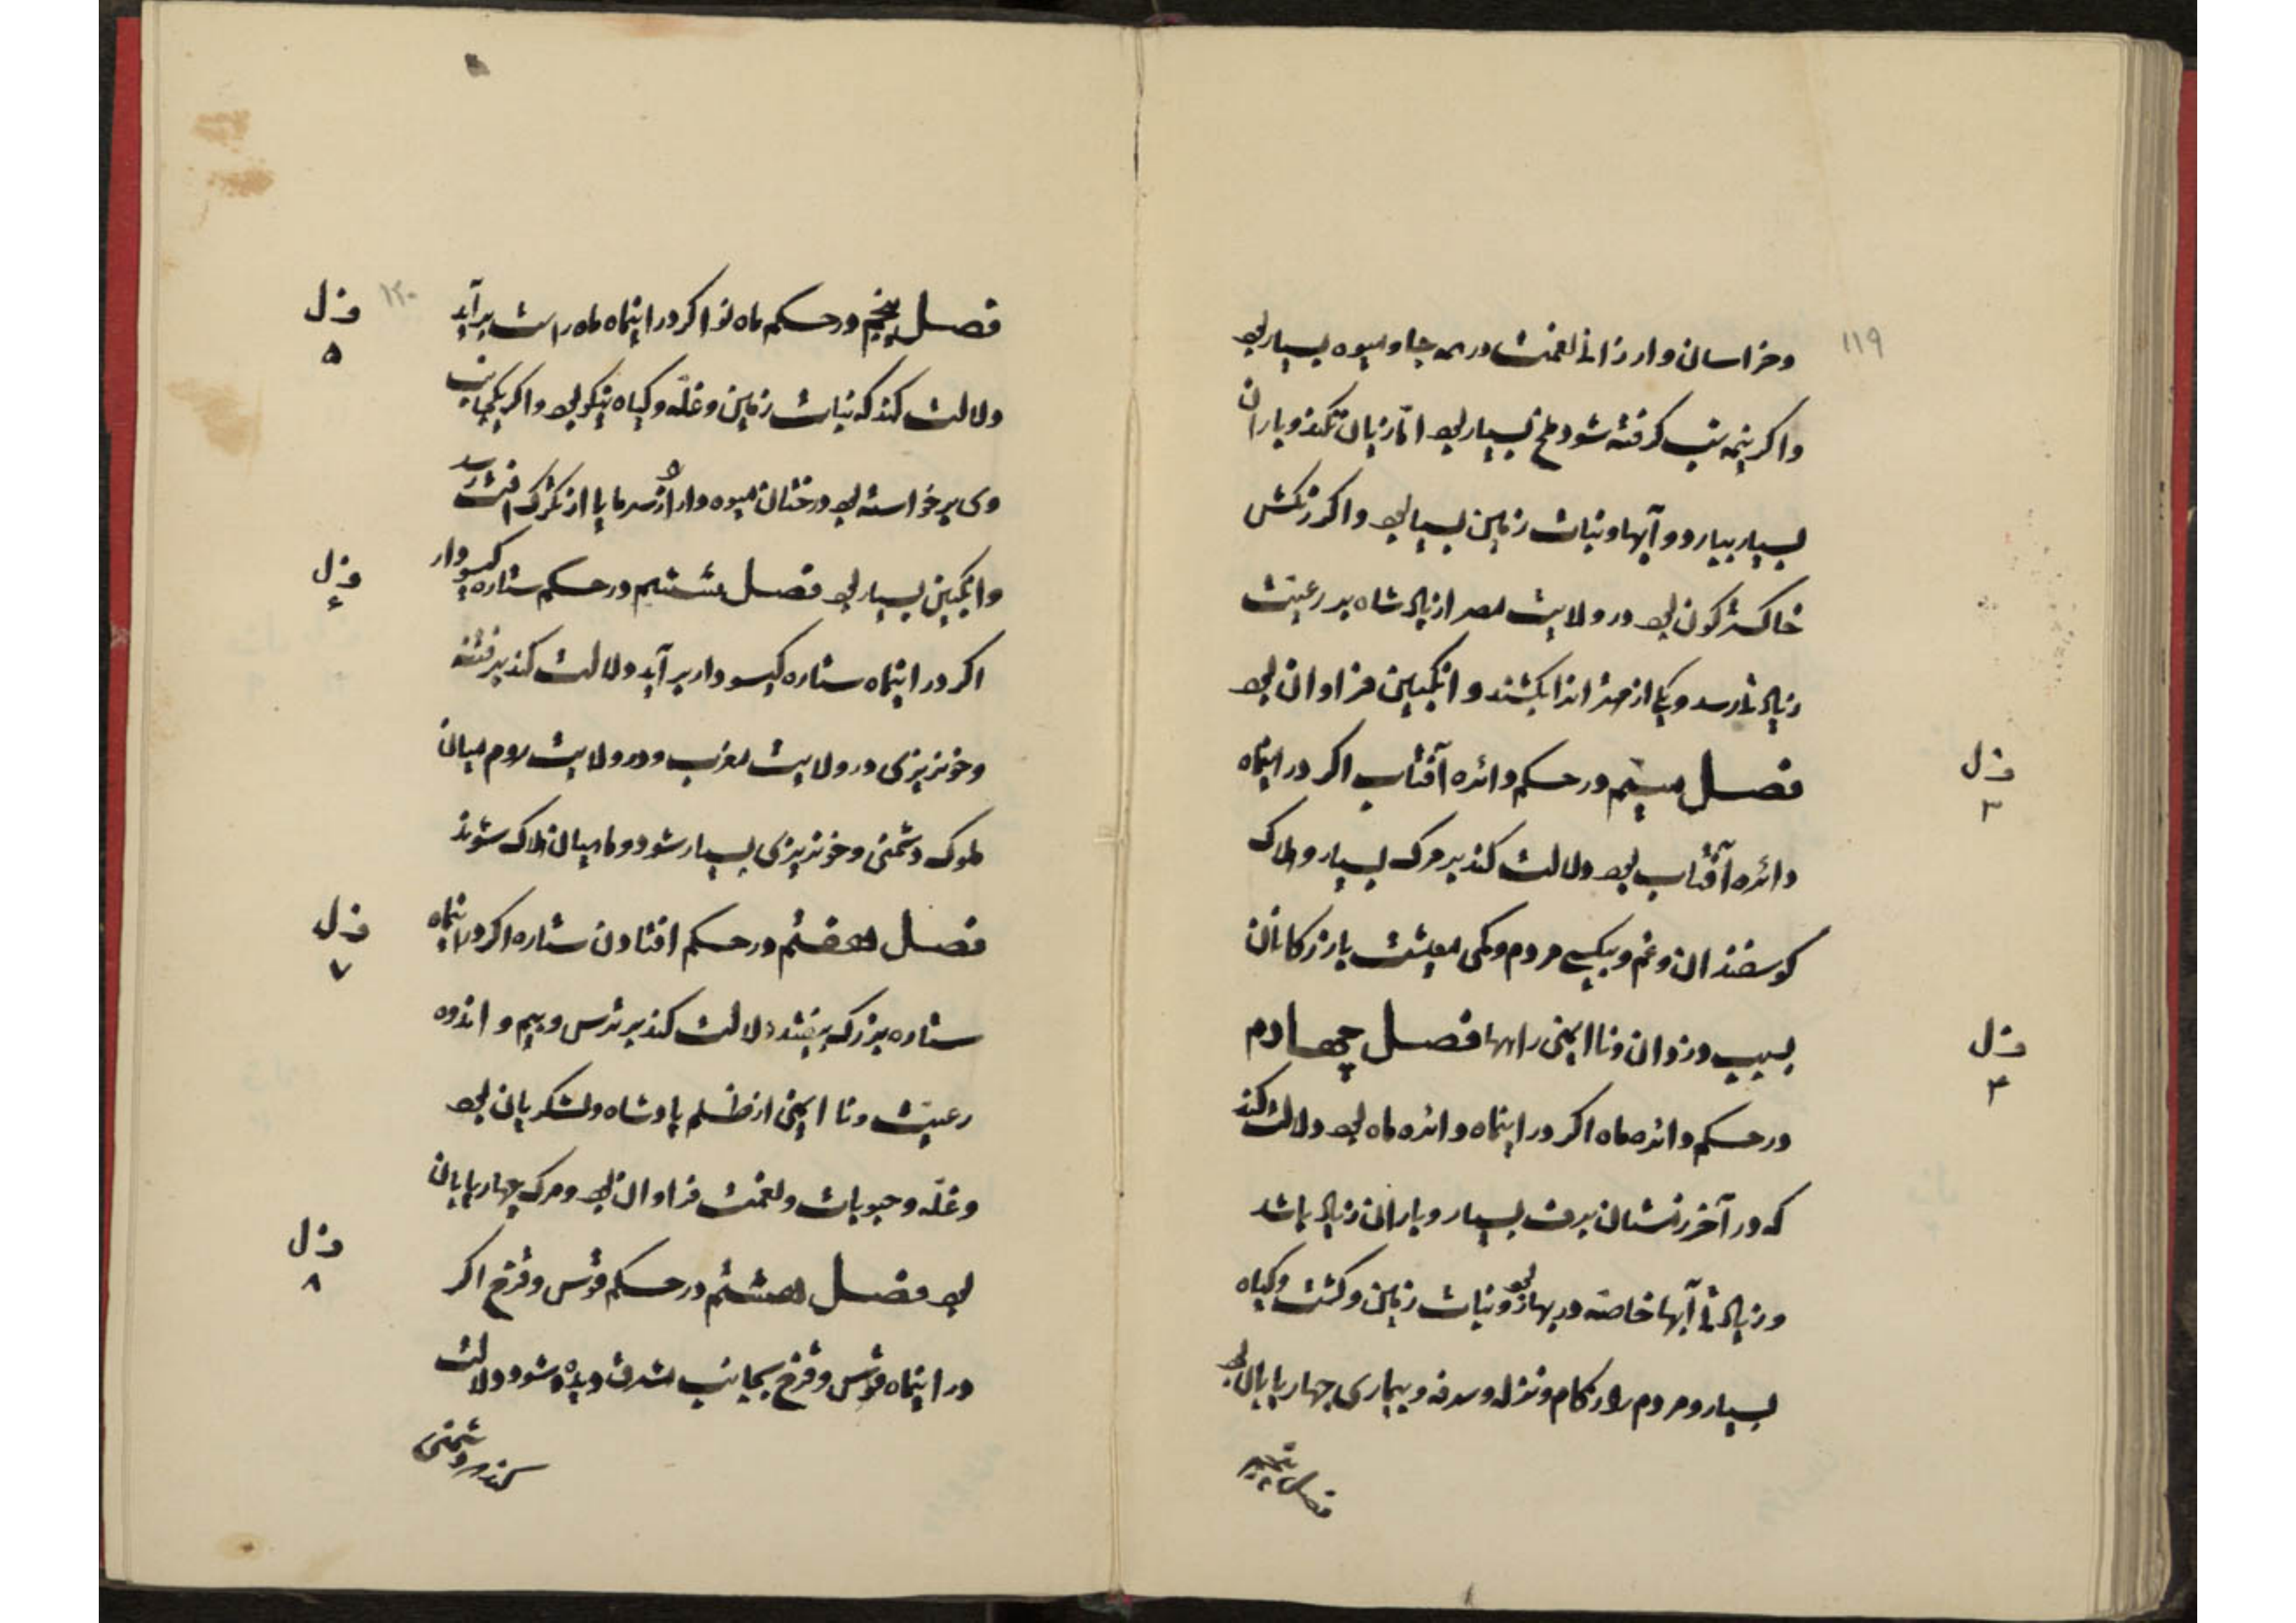 ۱۱۹
وخراسان وارزانی نعمت در همه جا و میوه بسیار بود
واکر نیمه شب کرفته شود ملخ بسیار بود امّا زیان نکند وباران
بسیار ببارد و آبها و نبات زمین بسیار بود واکر رنکش
خاکستر کون بود در ولایت مصر از پادشاه بر رعیت
زیادتی رسد ویکی از مهتران را بکشند و انکبین فراوان بود
فصل سیم در حکم دائره آفتاب اکر در اینماه
دائره آفتاب بود دلالت کند بر مرک بسیار و هلاک
کوسفندان وغم وبیکسی مردم وکمی معیشت بازرکانان
بسبب دزدان ونا ایمنی راهها فصل چهارم
در حکم دائره ماه اکر در اینماه دائره ماه بود دلالت کند
که در آخر زمستان برف بسیار و باران زیاد باشد
وزیادتی آبها خاصه در بهار بود ونبات زمین وکشت وکیاه
بسیار ومردم را زکام ونزله وسرفه وبیماری چهارپایان بود
فصل پنجم
فصل
۳
فصل
۴
۱۲۰
فصل پنجم در حکم ماه نو اکر در اینماه ماه راست برآید
دلالت کند که نبات زمین وغلّه وکیاه نیکو بود واکر یکجانب
وی برخواسته بود درختان میوه دار را از سرما یا از تکرک آفت رسد
وانکبین بسیار بود فصل ششم در حکم ستاره کیسودار
اکر در اینماه ستاره کیسو دار برآید دلالت کند بر فتنه
وخونریزی در ولایت مغرب ودر ولایت روم میان
ملوک دشمنی وخونریزی بسیار شود وماهیان هلاک شوند
فصل هفتم در حکم افتادن ستاره اکر در اینماه
ستاره بزرک بیفتد دلالت کند بر ترس وبیم و اندوه
رعیت ونا ایمنی از ظلم پادشاه ولشکریان بود
وغلّه وحبوبات ونعمت فراوان بود ومرک چهارپایان
بود فصل هشتم در حکم قوس وقزح اکر
در اینماه قوس وقزح بجانب مشرق دیده شود دلالت
کند بر دشمنی
فصل
۵
فصل
۶
فصل
۷
فصل
۸